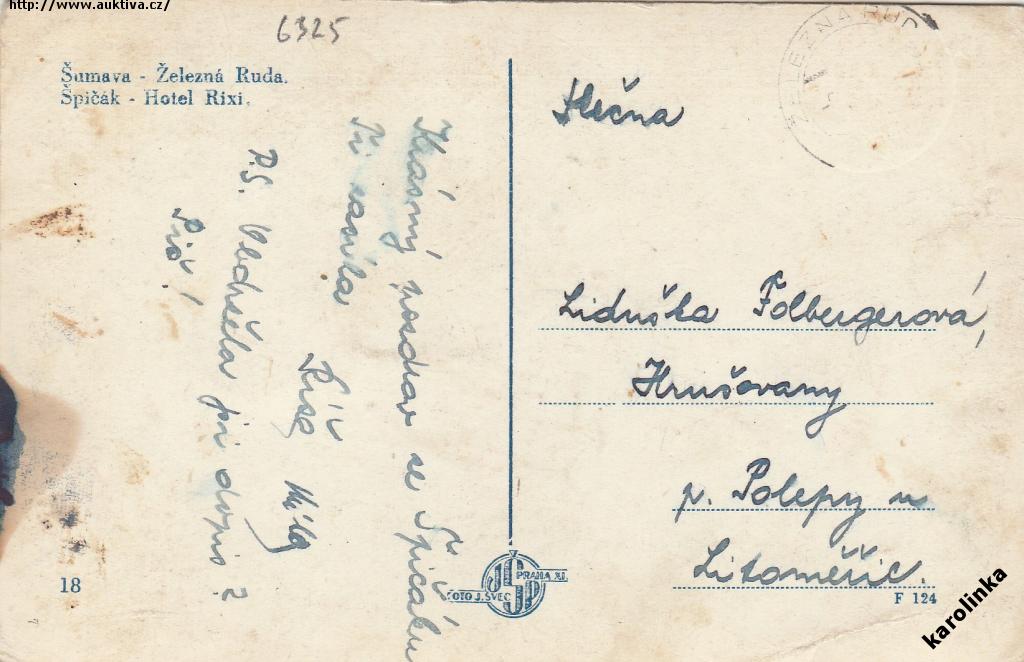 http://www.auktiva.cz/
6325
Šumava - Železná Ruda.
Špičák - Hotel Rixi.
Krásný pozdrav se Špičáku
Ti zasílá
P.S. Obdržela jsi dopis?
Piš!
Slečna
Liduška Folbergerová,
Hrušovany
p. Polepy u
Litoměřic.
ŽELEZNÁ RUD
FOTO J. ŠVEC
PRAHA XI.
JSP
18
F 124
karolinka